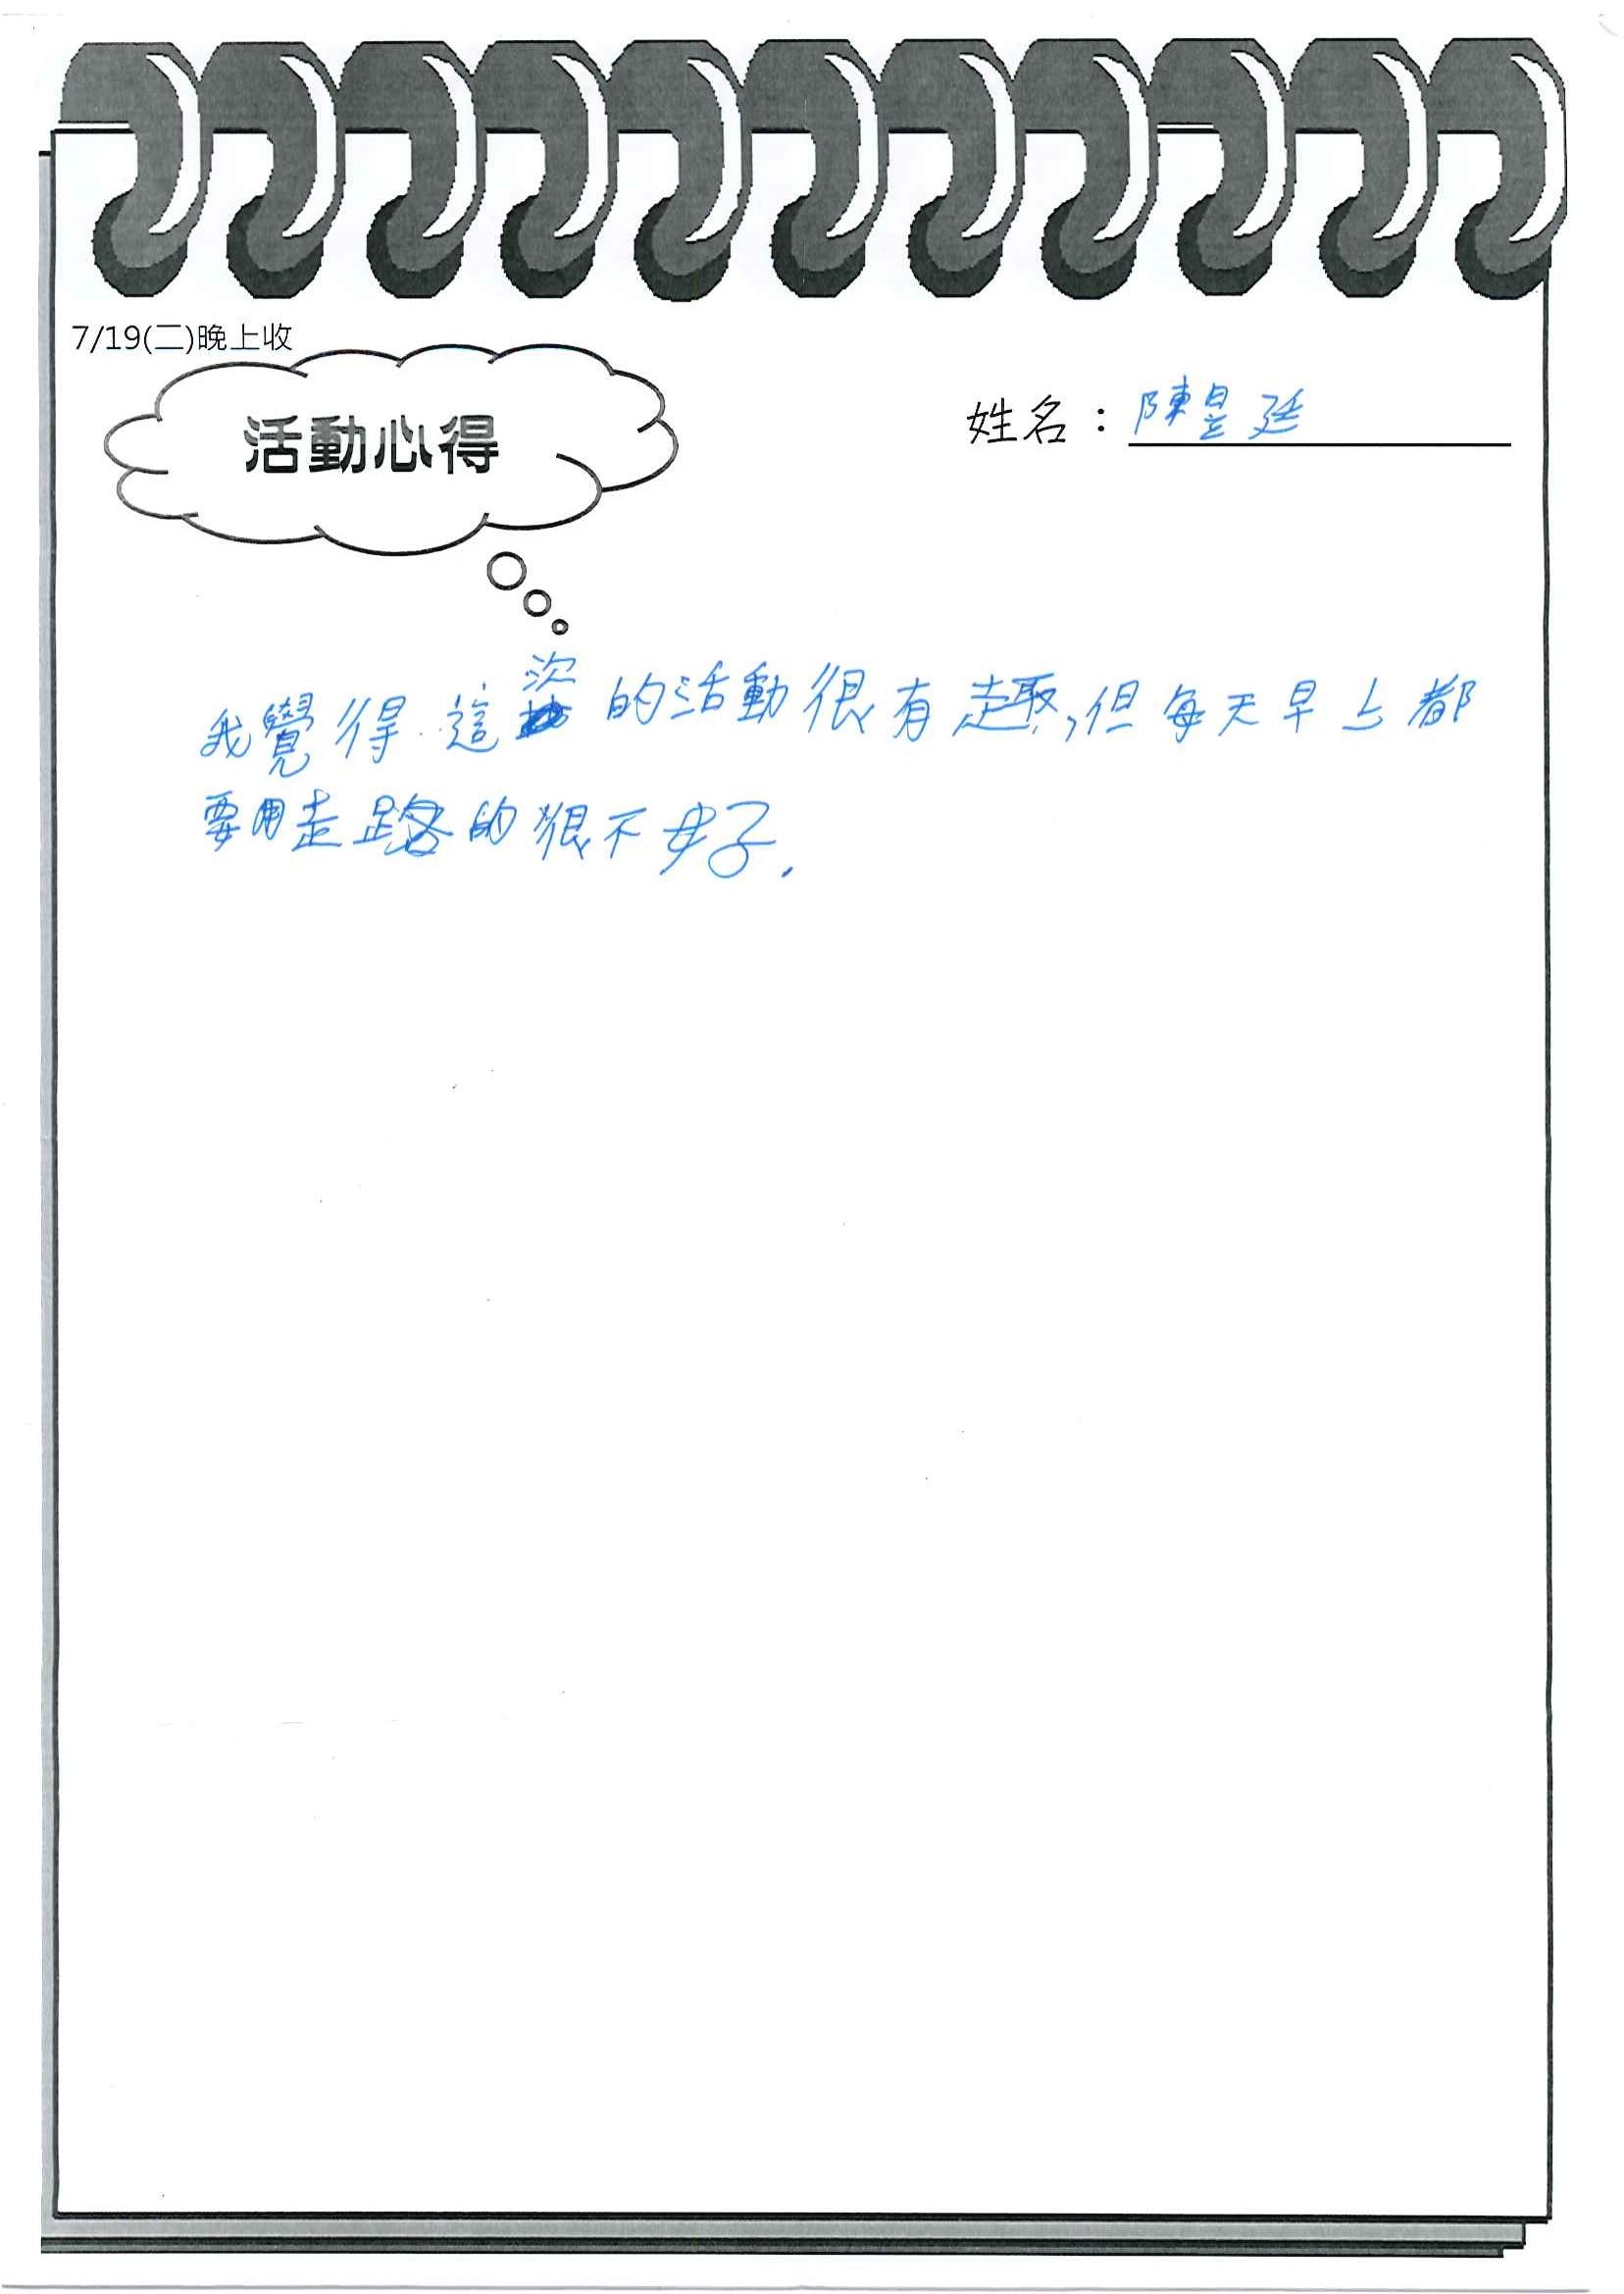 7/19(二)晚上收
活動心得
姓名：陳昱廷
我覺得這次的活動很有趣,但每天早上都
要用走路的很不好.